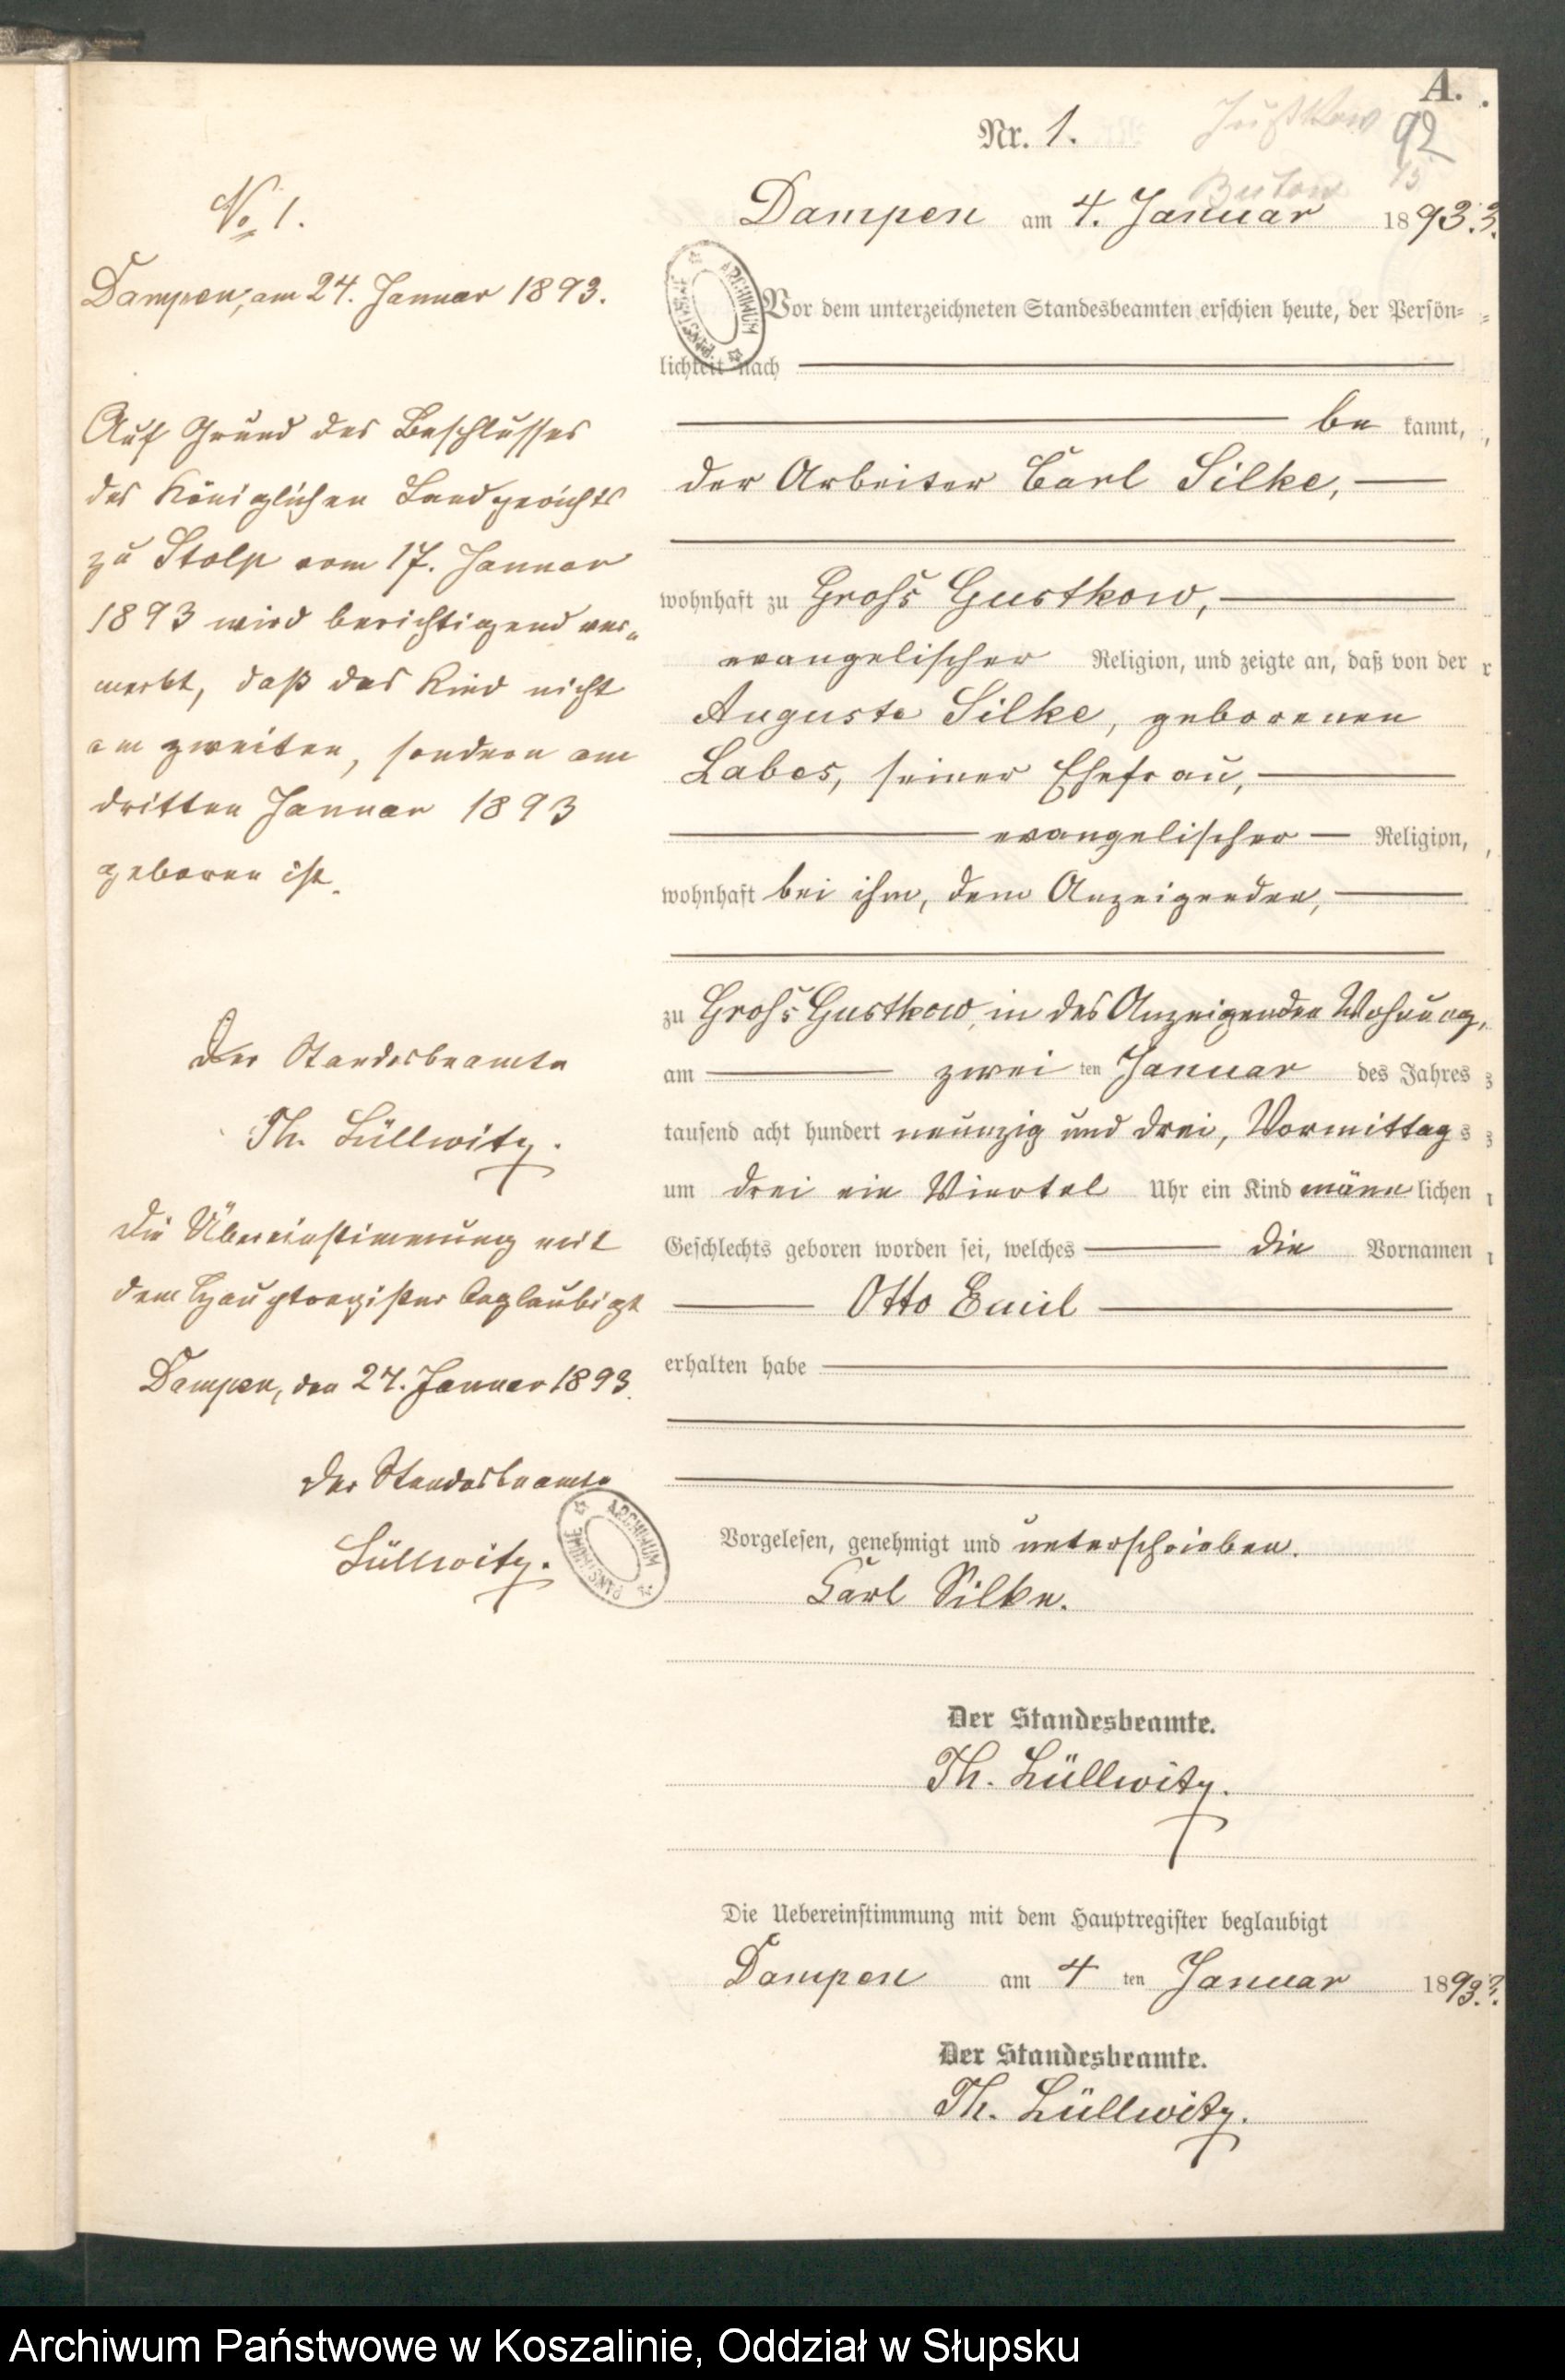 A.
Nr. 1.
92
Dampen am 4. Januar 1893.
Vor dem unterzeichneten Standesbeamten erschien heute, der Persön-
lichkeit nach
be kannt,
der Arbeiter Carl Silke,
wohnhaft zu Groß Gustkow,
evangelischer Religion, und zeigte an, daß von der
Auguste Silke, geborenen
Labes, seiner Ehefrau,
evangelischer Religion,
wohnhaft bei ihm, dem Anzeigenden,
zu Groß Gustkow, in des Anzeigenden Wohnung,
am zwei ten Januar des Jahres
tausend acht hundert neunzig und drei, Vormittags
um drei ein Viertel Uhr ein Kind männ lichen
Geschlechts geboren worden sei, welches die Vornamen
Otto Emil
erhalten habe
Vorgelesen, genehmigt und unterschrieben.
Carl Silke.
Der Standesbeamte.
Th. Lüllwitz.
Die Uebereinstimmung mit dem Hauptregister beglaubigt
Dampen am 4 ten Januar 1893.
Der Standesbeamte.
Th. Lüllwitz.
No 1.
Dampen, am 24. Januar 1893.
Auf Grund des Beschlusses
des Königlichen Landgerichts
zu Stolp vom 17. Januar
1893 wird berichtigend ver-
merkt, daß das Kind nicht
am zweiten, sondern am
dritten Januar 1893
geboren ist.
Der Standesbeamte
Th. Lüllwitz.
Die Übereinstimmung mit
dem Hauptregister beglaubigt
Dampen, den 24. Januar 1893.
Der Standesbeamte
Lüllwitz.
ARCHIWUM PAŃSTWOWE
ARCHIWUM PAŃSTWOWE
Archiwum Państwowe w Koszalinie, Oddział w Słupsku